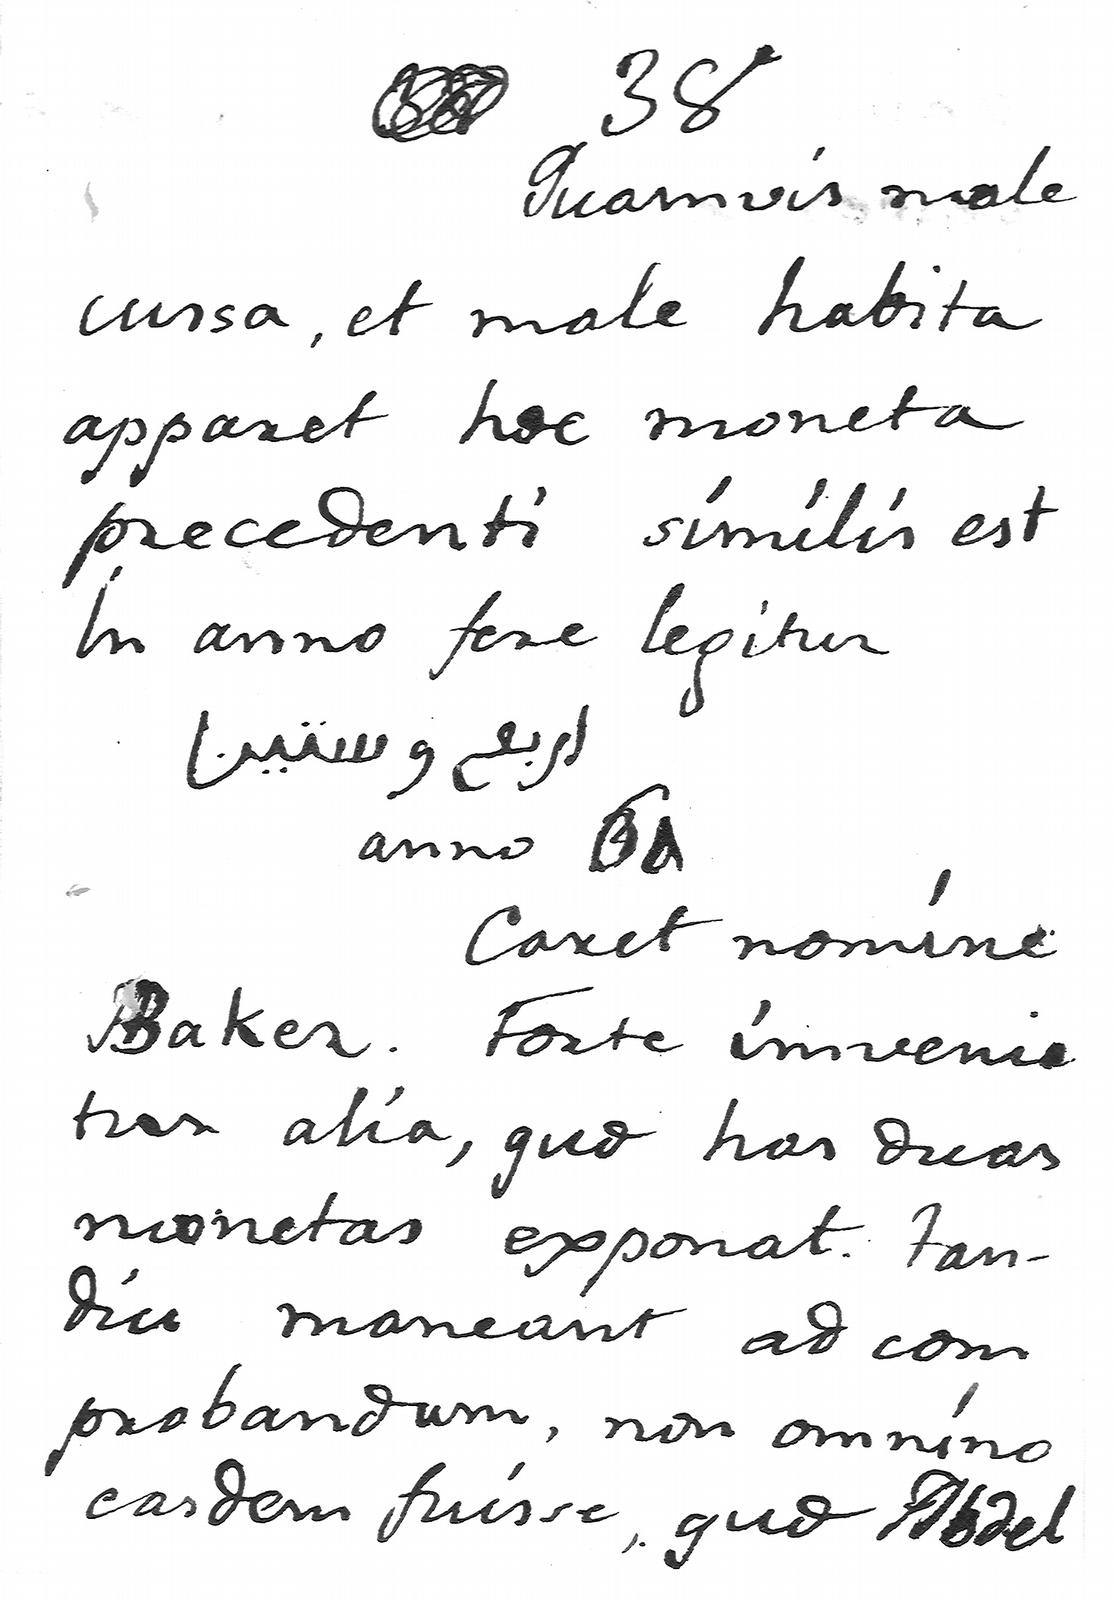 38
Quamvis male
cussa, et male habita
apparet hec moneta
precedenti similis est
In anno fere legitur
اربع وستين
anno
Caret nomine
Baker. Forte invenie
tur alia, quod has duas
monetas exponat. Tan-
diu maneant ad com
probandum, non omnino
easdem fuisse, quod Abdel